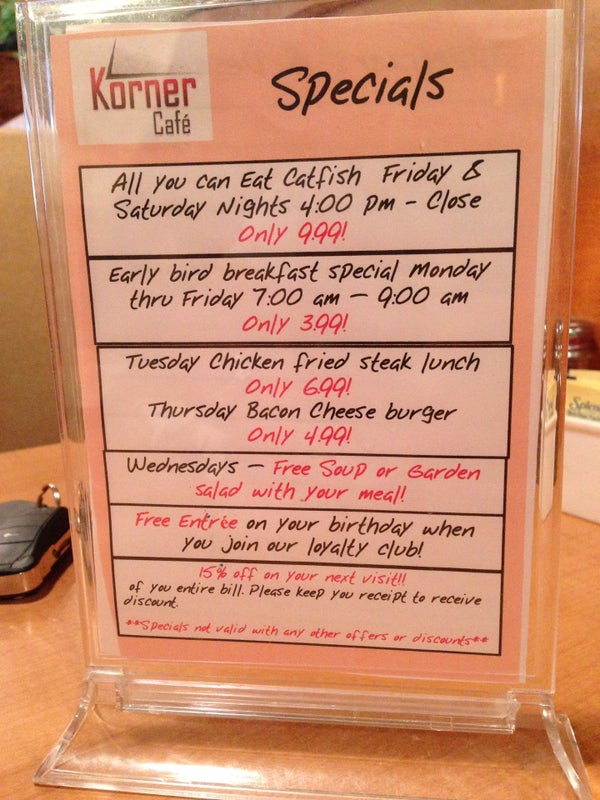 Korner
Café
Specials
All you can Eat Catfish Friday &
Saturday Nights 4:00 pm - Close
Only 9.99!
Early bird breakfast special Monday
thru Friday 7:00 am - 9:00 am
Only 3.99!
Tuesday Chicken fried steak lunch
Only 6.99!
Thursday Bacon Cheese burger
Only 4.99!
Wednesdays - Free Soup or Garden
salad with your meal!
Free Entrée on your birthday when
you join our loyalty club!
15% off on your next visit!!
of you entire bill. Please keep you receipt to receive
discount.
**Specials not valid with any other offers or discounts**